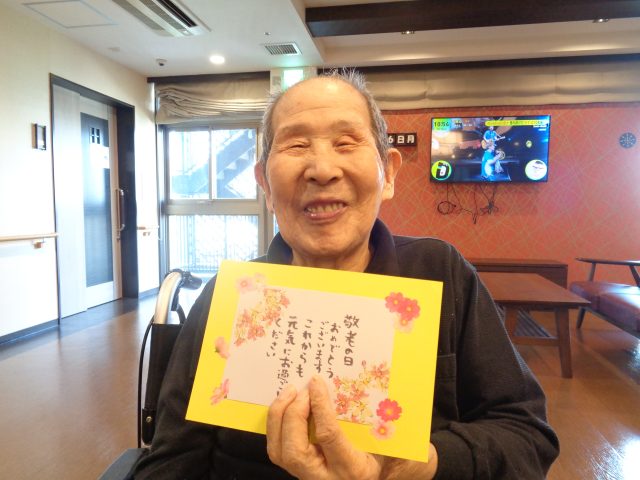 敬老の日
おめでとう
ございます
これからも
元気にお過ご
ください
10:54
6日月